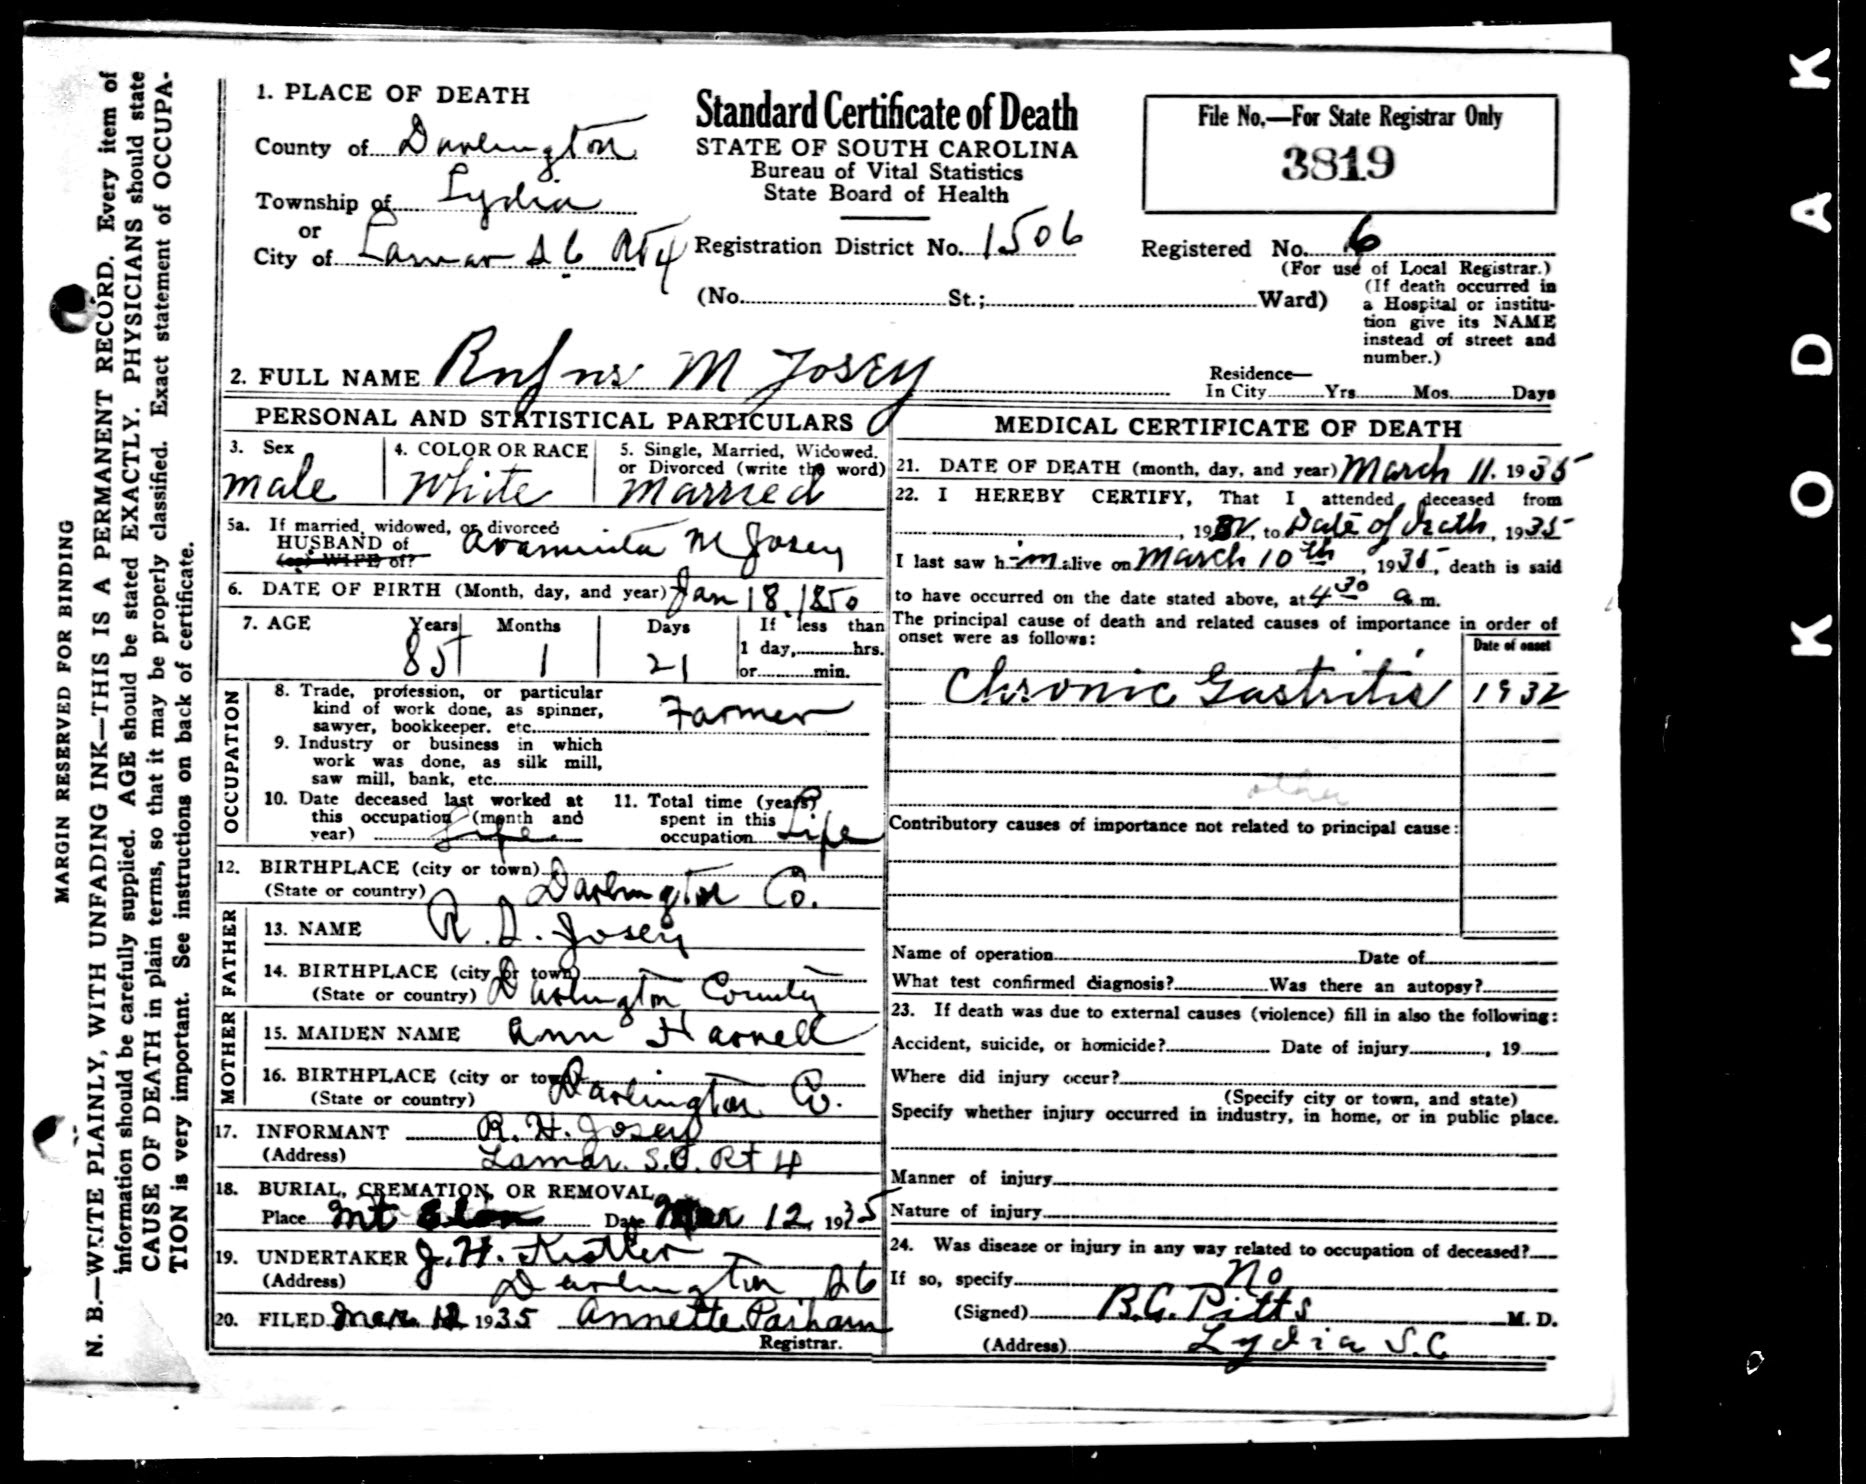 1. PLACE OF DEATH
County of Darlington
Township of Lydia
or
City of Lamar S C Rt 4
Standard Certificate of Death
STATE OF SOUTH CAROLINA
Bureau of Vital Statistics
State Board of Health
Registration District No. 1506
(No. St.; Ward)
File No.—For State Registrar Only
3819
Registered No. 6
(For use of Local Registrar.)
(If death occurred in
a Hospital or institu-
tion give its NAME
instead of street and
number.)
2. FULL NAME Rufus M Josey
Residence—
In City Yrs. Mos. Days
PERSONAL AND STATISTICAL PARTICULARS
3. Sex
male
4. COLOR OR RACE
White
5. Single, Married, Widowed,
or Divorced (write the word)
Married
5a. If married, widowed, or divorced
HUSBAND of
(or) WIFE of?
Araminta M Josey
6. DATE OF BIRTH (Month, day, and year) Jan 18. 1850
7. AGE Years Months Days If less than
85 1 21
1 day, hrs.
or min.
OCCUPATION
8. Trade, profession, or particular
kind of work done, as spinner,
sawyer, bookkeeper, etc. Farmer
9. Industry or business in which
work was done, as silk mill,
saw mill, bank, etc.
10. Date deceased last worked at
this occupation (month and
year) Life
11. Total time (years)
spent in this
occupation Life
12. BIRTHPLACE (city or town)
(State or country) Darlington Co.
FATHER
13. NAME R. D. Josey
14. BIRTHPLACE (city or town)
(State or country) Darlington County
MOTHER
15. MAIDEN NAME Ann Harrell
16. BIRTHPLACE (city or town)
(State or country) Darlington Co.
17. INFORMANT R. H. Josey
(Address) Lamar. S.C. Rt 4
18. BURIAL, CREMATION, OR REMOVAL
Place Mt Elon Date Mar 12, 1935
19. UNDERTAKER J. H. Kistler
(Address) Darlington S C
20. FILED Mar. 12 1935 Annette Parham
Registrar.
MEDICAL CERTIFICATE OF DEATH
21. DATE OF DEATH (month, day, and year) March 11. 1935
22. I HEREBY CERTIFY, That I attended deceased from
, 1932, to Date of death, 1935
I last saw him alive on March 10th, 1935, death is said
to have occurred on the date stated above, at 4 30 a.m.
The principal cause of death and related causes of importance in order of
onset were as follows:
Date of onset
Chronic Gastritis 1932
other
Contributory causes of importance not related to principal cause:
Name of operation Date of
What test confirmed diagnosis? Was there an autopsy?
23. If death was due to external causes (violence) fill in also the following:
Accident, suicide, or homicide? Date of injury , 19
Where did injury occur?
(Specify city or town, and state)
Specify whether injury occurred in industry, in home, or in public place.
Manner of injury
Nature of injury
24. Was disease or injury in any way related to occupation of deceased?
If so, specify No
(Signed) B.G. Pitts M. D.
(Address) Lydia S.C.
MARGIN RESERVED FOR BINDING
N. B.—WRITE PLAINLY, WITH UNFADING INK—THIS IS A PERMANENT RECORD. Every item of
information should be carefully supplied. AGE should be stated EXACTLY. PHYSICIANS should state
CAUSE OF DEATH in plain terms, so that it may be properly classified. Exact statement of OCCUPA-
TION is very important. See instructions on back of certificate.
KODAK